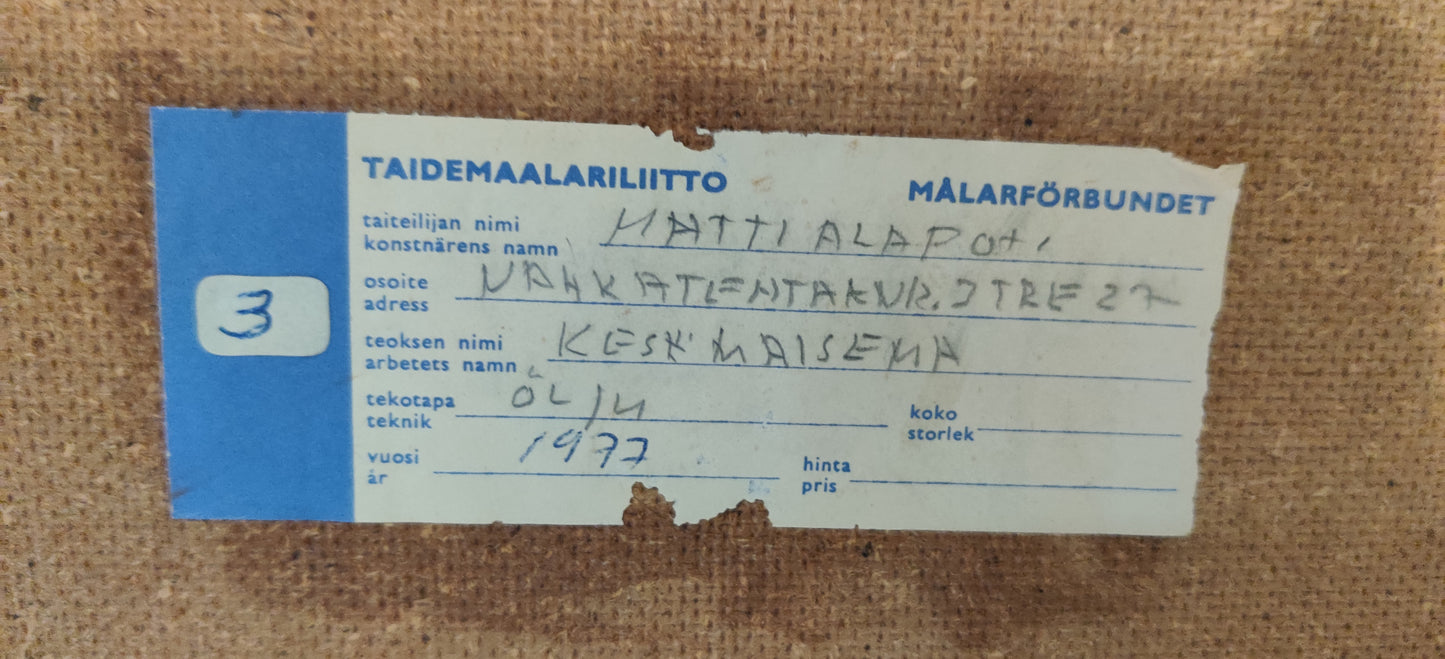 TAIDEMAALARILIITTO MÅLARFÖRBUNDET
taiteilijan nimi
konstnärens namn MATTI ALAPOTI
osoite
adress TRE 27
3
teoksen nimi
arbetets namn KESKIMAISEMA
tekotapa
teknik ÖLJY
koko
storlek
vuosi
år 1977
hinta
pris